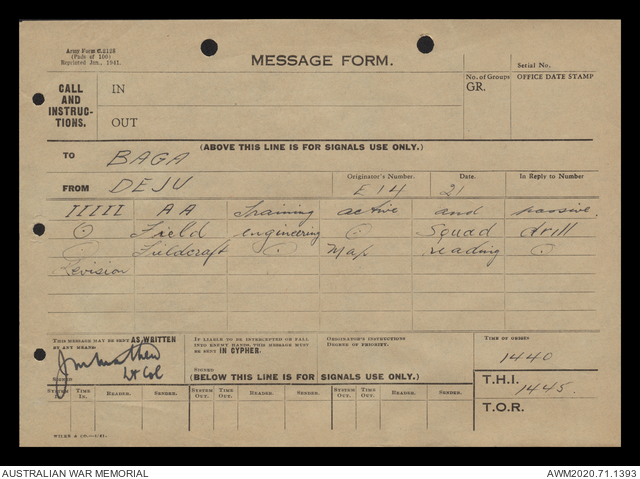 Army Form C.2128
(Pads of 100)
Reprinted Jan., 1941.
MESSAGE FORM.
Serial No.
CALL AND INSTRUC-TIONS.
IN
OUT
No. of Groups
GR.
OFFICE DATE STAMP
(ABOVE THIS LINE IS FOR SIGNALS USE ONLY.)
TO BAGA
FROM DEJU
Originator's Number. E14
Date. 21
In Reply to Number
IIIII AA Training active and passive.
⊙ Field engineering ⊙ Squad drill
⊙ Fieldcraft ⊙ Map reading ⊙
Revision
THIS MESSAGE MAY BE SENT AS WRITTEN BY ANY MEANS.
IF LIABLE TO BE INTERCEPTED OR FALL INTO ENEMY HANDS, THIS MESSAGE MUST BE SENT IN CYPHER.
ORIGINATOR'S INSTRUCTIONS
DEGREE OF PRIORITY.
TIME OF ORIGIN
1440
Lt Col
SIGNED
SIGNED
(BELOW THIS LINE IS FOR SIGNALS USE ONLY.)
T.H.I. 1445.
SYSTEM IN. TIME IN. READER. SENDER. SYSTEM OUT. TIME OUT. READER. SENDER. SYSTEM OUT. TIME OUT. READER. SENDER.
T.O.R.
AUSTRALIAN WAR MEMORIAL
AWM2020.71.1393